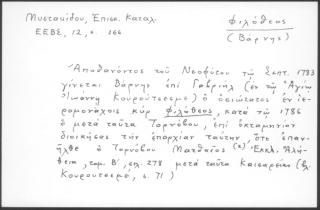 Μυστακίδου, Επισκ. Καταλ.
ΕΕΒΣ, 12, σ. 166
Φιλόθεος
(Βάρνης)
Ἀποθανόντος τοῦ Νεοφύτου τῷ Σεπτ. 1783
γίνεται Βάρνης ἐπὶ Γαβριὴλ (ἐν τῷ Ἁγίῳ
Ἰωάννῃ Κουρούτσεσμὲ) ὁ ὁσιώτατος ἐν ἱε-
ρομονάχοις κὺρ Φιλόθεος, κατὰ τῷ 1786
ὁ μετὰ ταῦτα Τορνόβου, ἐπὶ ὀκταμηνίαν
διοικήσας τὴν ἐπαρχίαν ταύτην ὅτε ἐπαν-
ῆλθε ὁ Τορνόβου Ματθαῖος (Ἐκκλ. Ἀλή-
θεια, τομ. Β΄, σελ. 278 μετὰ ταῦτα Καισαρείας (
Κουρούτσεσμὲ, σ. 71)